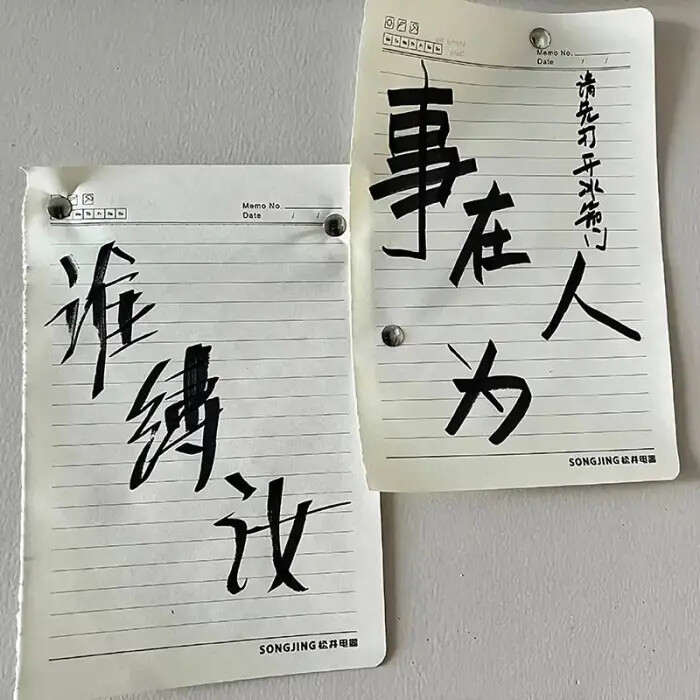 Memo No.
Date / /
谁缚汝
SONGJING 松井电器
Memo No.
Date / /
请先打开冰箱门
事在人为
SONGJING 松井电器